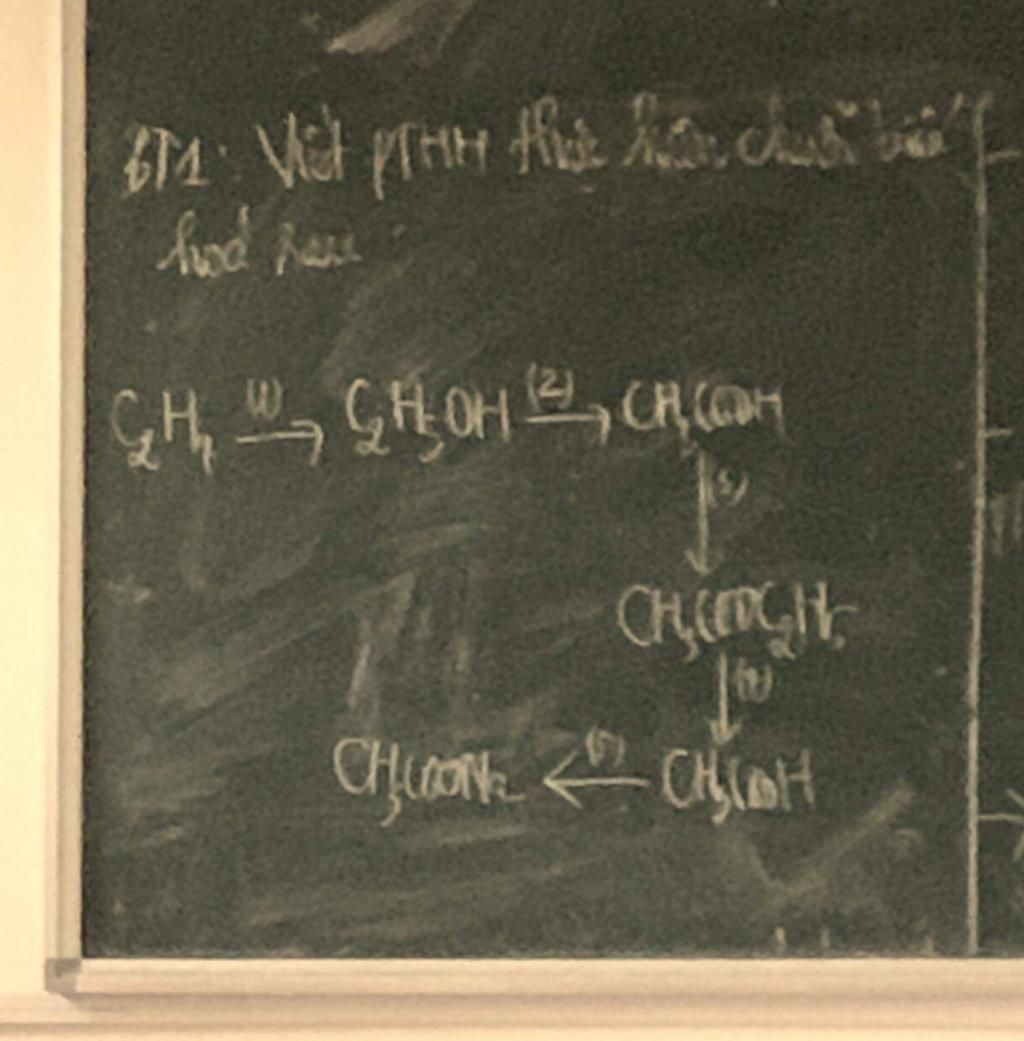 BT1: Viết PTHH thực hiện chuỗi biến
hoá sau:
C₂H₄ (1)→ C₂H₅OH (2)→ CH₃COOH
↓(3)
CH₃COOC₂H₅
↓(4)
CH₃COONa ←(5) CH₃COOH